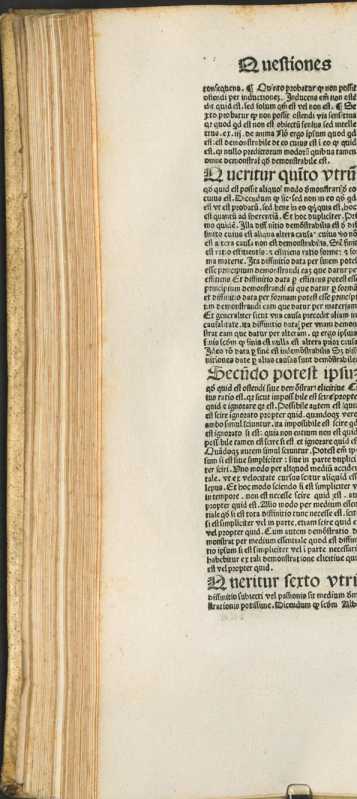 Questiones
consequens. ¶ Quinto probatur ꝙ non possit
ostendi per inductionem. Inducens em̄ non ostē
dit quid est. sed solum qm̄ est vel non est. ¶ Se
xto probatur ꝙ non possit ostendi via sensitiua
qr quod qd est non est obiectū sensus sed intelle
ctus. ex .iij. de anima
est. est demonstrabile de eo cuius est
est. qr nullo predictorum modorū quibus tamen
demonstrat qd demonstrabile est.
Queritur quīto vtrū
qd quid est possit aliquo modo dmonstrari de eo
cuius est. Dicendum ꝙ sic. sed non in eo
est vt est probatū. sed bene in eo
est quantū ad inherentiā. Et hoc dupliciter.
mo quidē. Illa diffinitio demōstrabilis est
finitio cuius est aliqua altera causa. cuius vo nō
est altera causa non est demonstrabilis. Sic finis
est ratio efficientis. ⁊ efficiens ratio forme. ⁊ for
ma materie. Ita diffinitio data per finem potest
esse principium demonstrandi eaȝ que datur per
efficiens Et diffinitio data ꝑ efficiens potest esse
principium demonstrandi eā que datur ꝑ formā
et diffinitio data per formam potest esse principi
um demonstrandi eam que datur per materiam
Et generaliter sicut vna causa precedit aliam in
causalitate. ita diffinitio data per vnam demon
strat eam que datur per alteram. qr ergo ipsius
finis scdm ꝙ finis est nulla est altera prior causa
Ideo rō data ꝑ finē est indemōstrabilis
nitiones date ꝑ alias causas sunt demōstrabiles
Secūdo potest ipsuȝ
qd quid est ostendi siue demōstrari elicitiue
ius ratio est. qr sicut impossibile est scire propter
quid ⁊ ignorare qr est. Possibile autem est
est scire ignorato propter quid. quandoqȝ vero
ambo simul sciuntur. ita impossibile est scire qd
est ignorato si est: quia non entium non est quid
possibile tamen est scire si est et ignorare quid est
Quādoqȝ autem simul sciuntur. Potest em̄ ip
sum si est siue simpliciter: siue in parte duplici
ter sciri. Vno modo per aliquod mediū acciden
tale. vt ex velocitate cursus scitur aliquid esse
lepus. Et hoc modo sciendo si est simpliciter v
in tempore. non est necesse scire quid est.
propter quid est. Alio modo per medium essen
tiale qd si est tota diffinitio tunc necesse est. scito
si est simpliciter vel in parte. etiam scire quid e
vel propter quid. Cum autem demōstratio d
monstrat per medium essentiale quod est diffini
tio ipsum si est simpliciter vel ī parte necessari
habebitur ex tali demonstratione elicitiue qui
est vel propter quid.
Queritur sexto vtru
diffinitio subiecti vel passionis sit medium dem
strationis potissime. Dicendum ꝙ scdm Alb